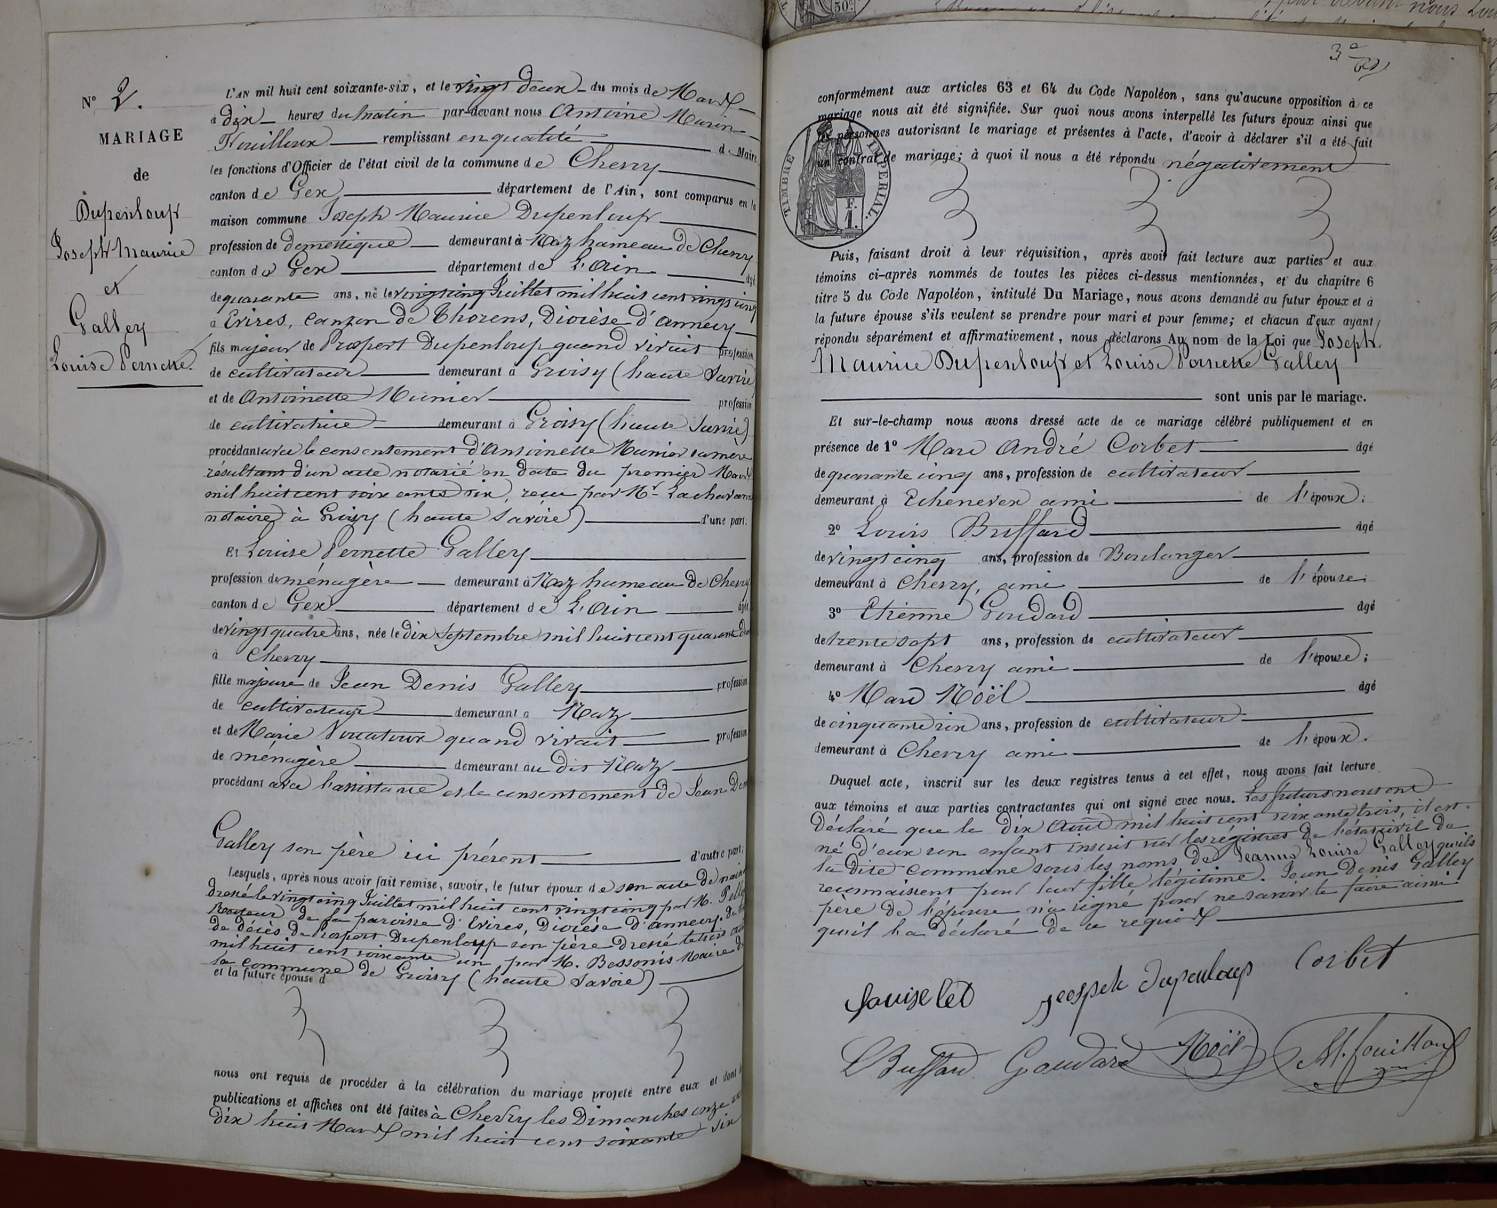 N° 2.
MARIAGE
de
Dupenloup
Joseph Maurice
et
Galley
Louise Pernette.
L'AN mil huit cent soixante-six, et le vingt deux du mois de Mars
à dix heures du matin par-devant nous Antoine Marin
Fouilloux remplissant en qualité de Maire
les fonctions d'Officier de l'état civil de la commune de Chevry
canton de Gex département de l'Ain, sont comparus en la
maison commune Joseph Maurice Dupenloup
profession de domestique demeurant à Naz hameau de Chevry
canton de Gex département de L'Ain âgé
de quarante ans, né le vingt cinq Juillet mil huit cent vingt cinq
à Evires, canton de Thorens, Diocèse d'annecy
fils majeur de Prospert Dupenloup quand vivait profession
de cultivateur demeurant à Groisy (haute Savoie)
et de Antoinette Munier profession
de cultivatrice demeurant à Groisy (haute Savoie)
procédant avec le consentement d'Antoinette Munier sa mère
résultant d'un acte notarié en date du premier Mars
mil huit cent soixante six, reçu par Mr.
notaire à Groisy (haute Savoie) d'une part.
Et Louise Pernette Galley
profession de ménagère demeurant à Naz hameau de Chevry
canton de Gex département de L'Ain âgée
de vingt quatre ans, née le dix Septembre mil huit cent quarante
à Chevry
fille majeure de Jean Denis Galley profession
de cultivateur demeurant à Naz
et de Marie quand vivait profession
de ménagère demeurant au dit Naz
procédant avec l'assistance et le consentement de Jean Denis
Galley son père ici présent d'autre part;
Lesquels, après nous avoir fait remise, savoir, le futur époux de son acte de
dressé le vingt cinq Juillet mil huit cent vingt cinq par M.
Recteur de la paroisse d'Evires, Diocèse d'annecy,
de décès de Prospert Dupenloup son père dressé le
mil huit cent soixante un par M. Bessonis Maire de
la commune de Groisy (haute Savoie)
et la future épouse d
nous ont requis de procéder à la célébration du mariage projeté entre eux et dont
publications et affiches ont été faites à Chevry les Dimanches onze
dix huit Mars mil huit cent soixante six
conformément aux articles 63 et 64 du Code Napoléon, sans qu'aucune opposition à ce
mariage nous ait été signifiée. Sur quoi nous avons interpellé les futurs époux ainsi que
les personnes autorisant le mariage et présentes à l'acte, d'avoir à déclarer s'il a été fait
un contrat de mariage; à quoi il nous a été répondu négativement
TIMBRE IMPÉRIAL.
1 F.
Puis, faisant droit à leur réquisition, après avoir fait lecture aux parties et aux
témoins ci-après nommés de toutes les pièces ci-dessus mentionnées, et du chapitre 6
titre 5 du Code Napoléon, intitulé Du Mariage, nous avons demandé au futur époux et à
la future épouse s'ils veulent se prendre pour mari et pour femme; et chacun d'eux ayant
répondu séparément et affirmativement, nous déclarons Au nom de la Loi que Joseph
Maurice Dupenloup et Louise Pernette Galley
sont unis par le mariage.
Et sur-le-champ nous avons dressé acte de ce mariage célébré publiquement et en
présence de 1° Marc André Corbet âgé
de quarante cinq ans, profession de cultivateur
demeurant à Echenevex ami de l'époux;
2° Louis Buffard âgé
de vingt cinq ans, profession de Boulanger
demeurant à Chevry, ami de l'épouse;
3° Etienne Goudard âgé
de trente sept ans, profession de cultivateur
demeurant à Chevry ami de l'épouse;
4° Marc Noël âgé
de cinquante six ans, profession de cultivateur
demeurant à Chevry ami de l'époux.
Duquel acte, inscrit sur les deux registres tenus à cet effet, nous avons fait lecture
aux témoins et aux parties contractantes qui ont signé avec nous. Les futurs nous ont
déclaré que le dix Août mil huit cent soixante trois, il est
né d'eux un enfant inscrit sur les régistres de l'état civil de
la dite commune sous les noms de Jeanne Louise Galley qu'ils
reconnaissent pour leur fille légitime. Jean Denis Galley
père de l'épouse n'a signé pour ne savoir le faire ainsi
qu'il l'a déclaré de ce requis
joseph dupenloup Corbet
L Buffard Goudard Noël M. fouilloux